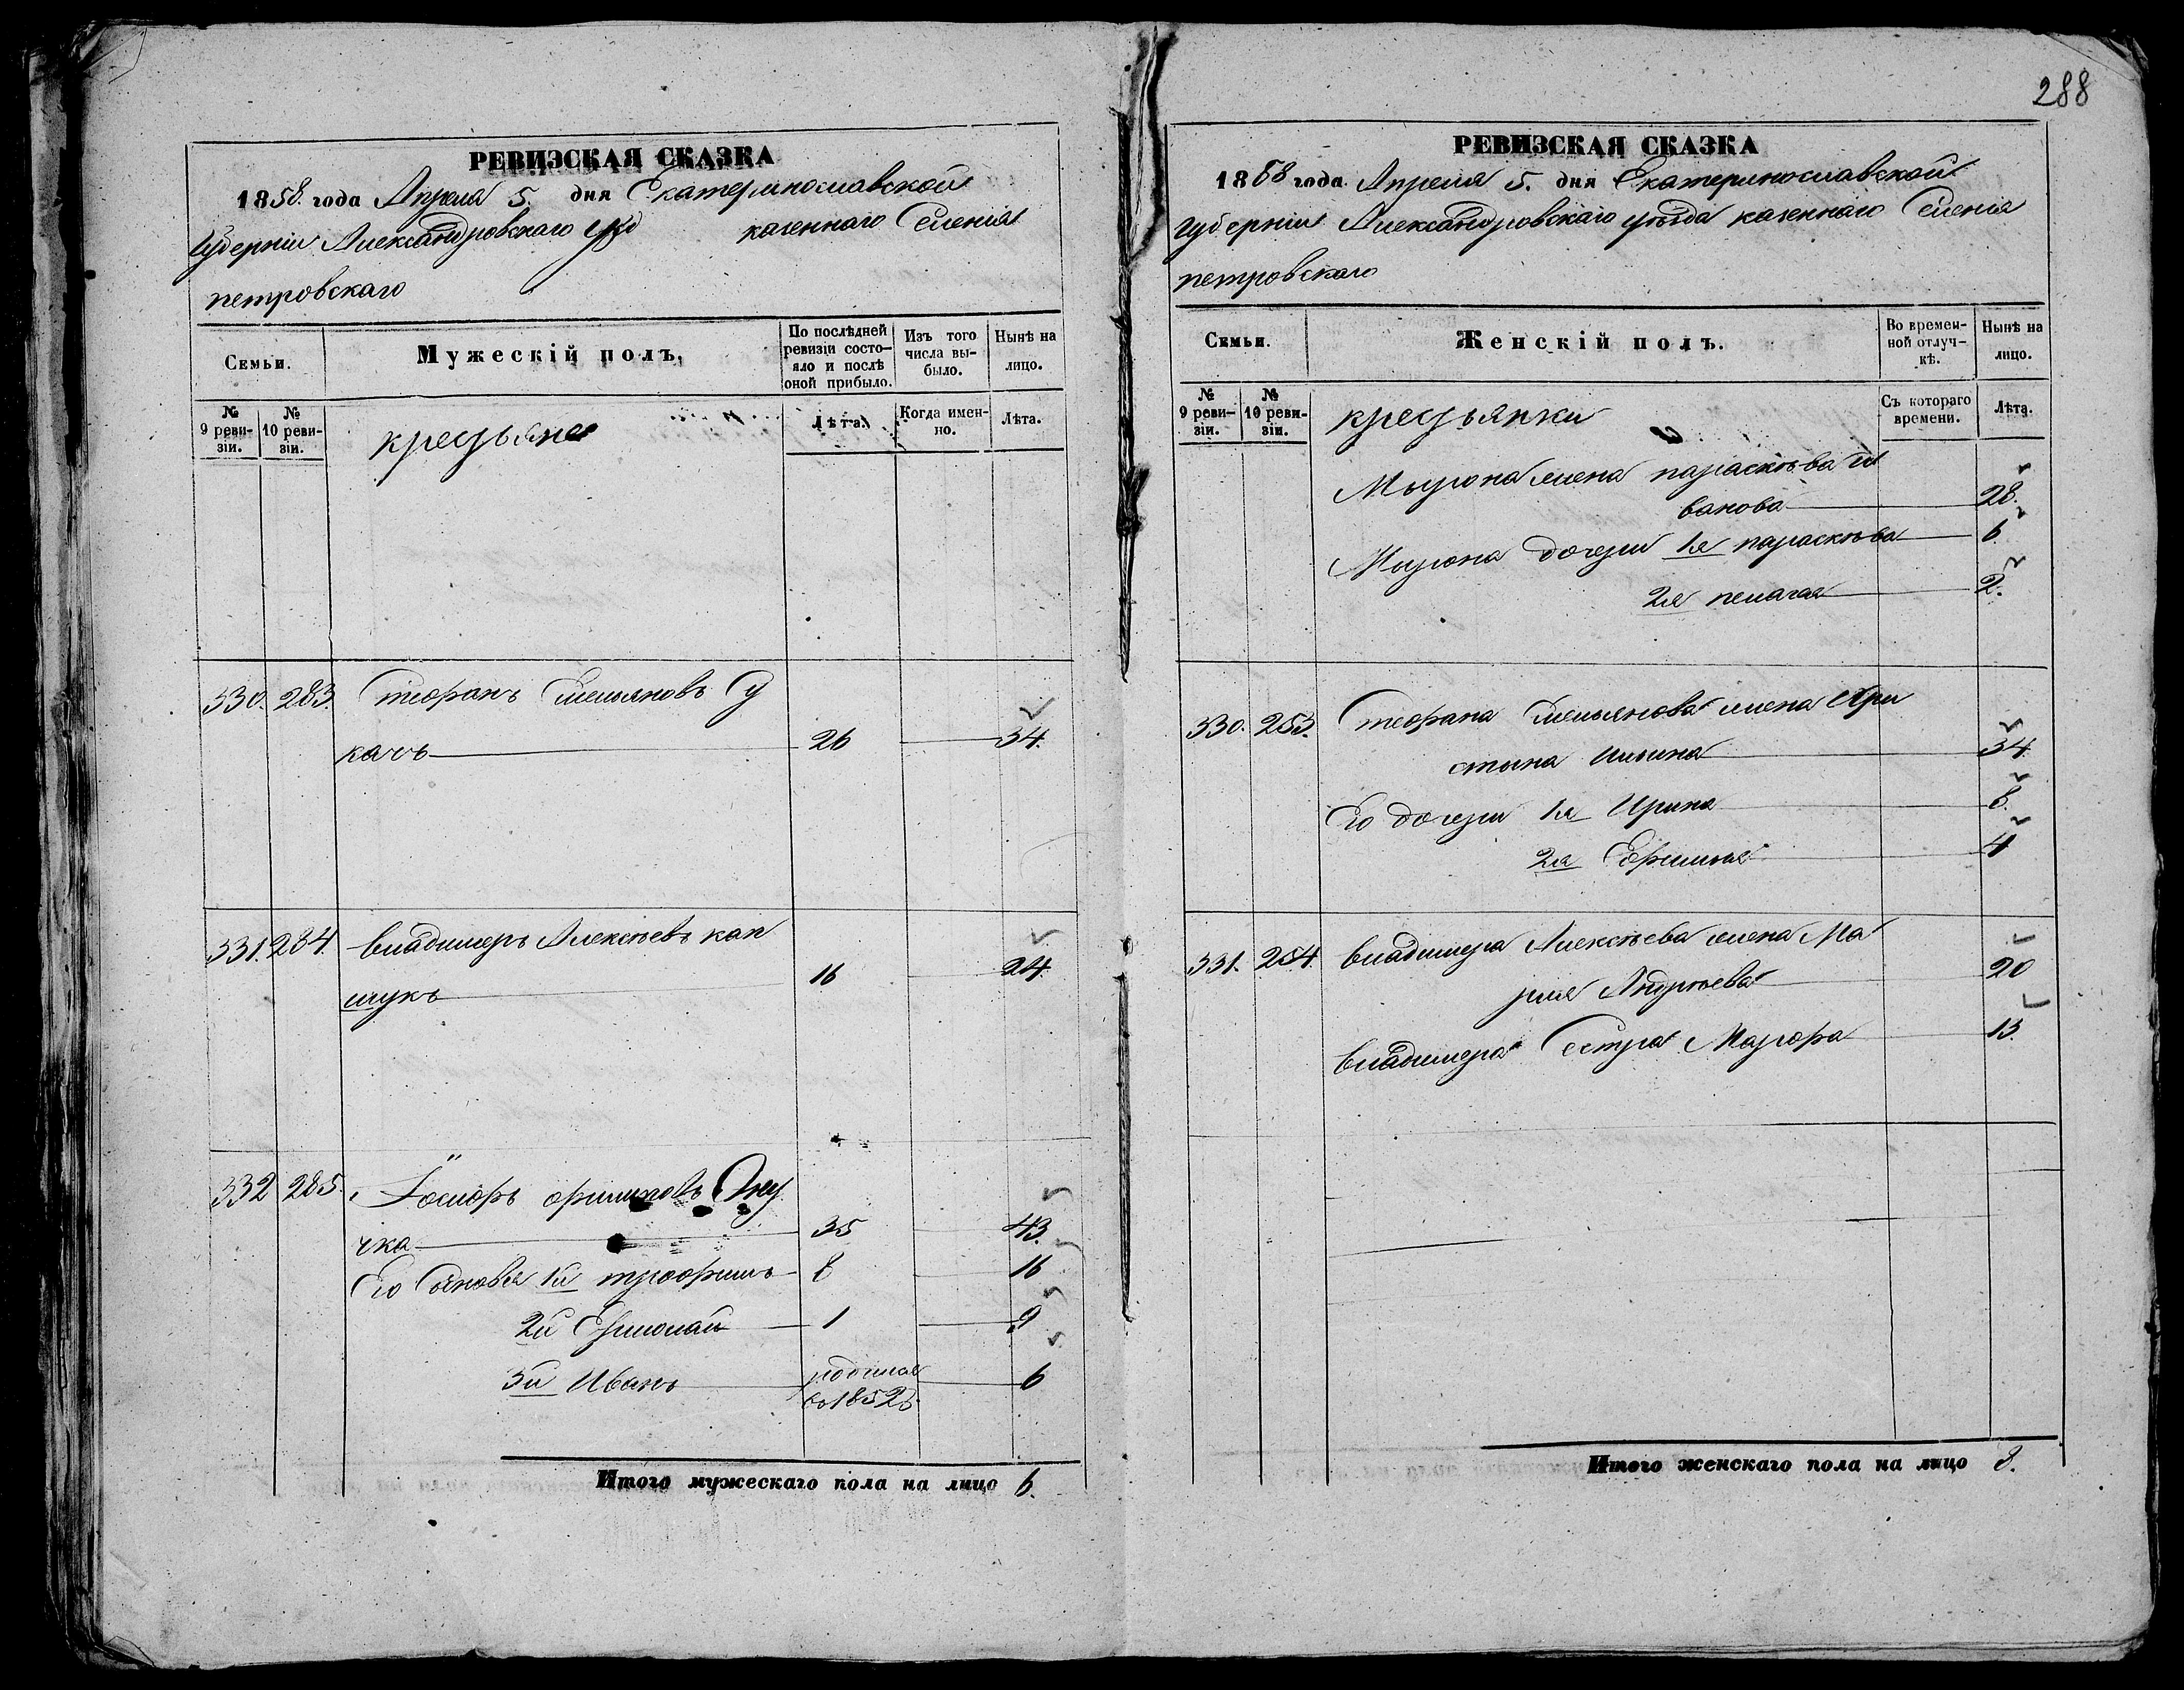 288
РЕВИЗСКАЯ СКАЗКА
1858. года Апреля 5. дня Екатеринославской
Губерніи Александровскаго уѣд казеннаго Селенія
петровскаго
Семьи.
Мужескій полъ.
По послѣдней ревизіи состояло и послѣ оной прибыло.
Изъ того числа выбыло.
Нынѣ на лицо.
№ 9 ревизіи.
№ 10 ревизіи.
крестьяне
Лѣта.
Когда именно.
Лѣта.
330. 283. Стефанъ Емельяновъ У
качъ 26 34.
331. 284. Владимеръ Алексѣевъ кап
шукъ 16 24.
332 285. Іосифъ
чка 35 43.
Его Сыновья 1й трофимъ 8 16
2й 1 9
3й Иванъ родился 6
въ 1852г
Итого мужескаго пола на лицо 6.
РЕВИЗСКАЯ СКАЗКА
1858 года Апреля 5. дня Екатеринославской
Губерніи Александровскаго уѣзда казеннаго Селенія
петровскаго
Семьи.
Женскій полъ.
Во временной отлучкѣ.
Нынѣ на лицо.
№ 9 ревизіи.
№ 10 ревизіи.
крестьянки
Съ котораго времени.
Лѣта.
Мырона жена параскѣва И
ванова 28.
Мырона дочери 1я параскѣва 6
2я пелагая 2.
330. 283. Стефана Емельянова жена Хри
стына Ильина 34.
Его дочери 1я Ирина 8.
2я Ефимья 4
331. 284. Владимера Алексѣева жена Ма
рия Андрѣева 20
Владимера Сестра Марфа 13.
Итого женскаго пола на лицо 8.